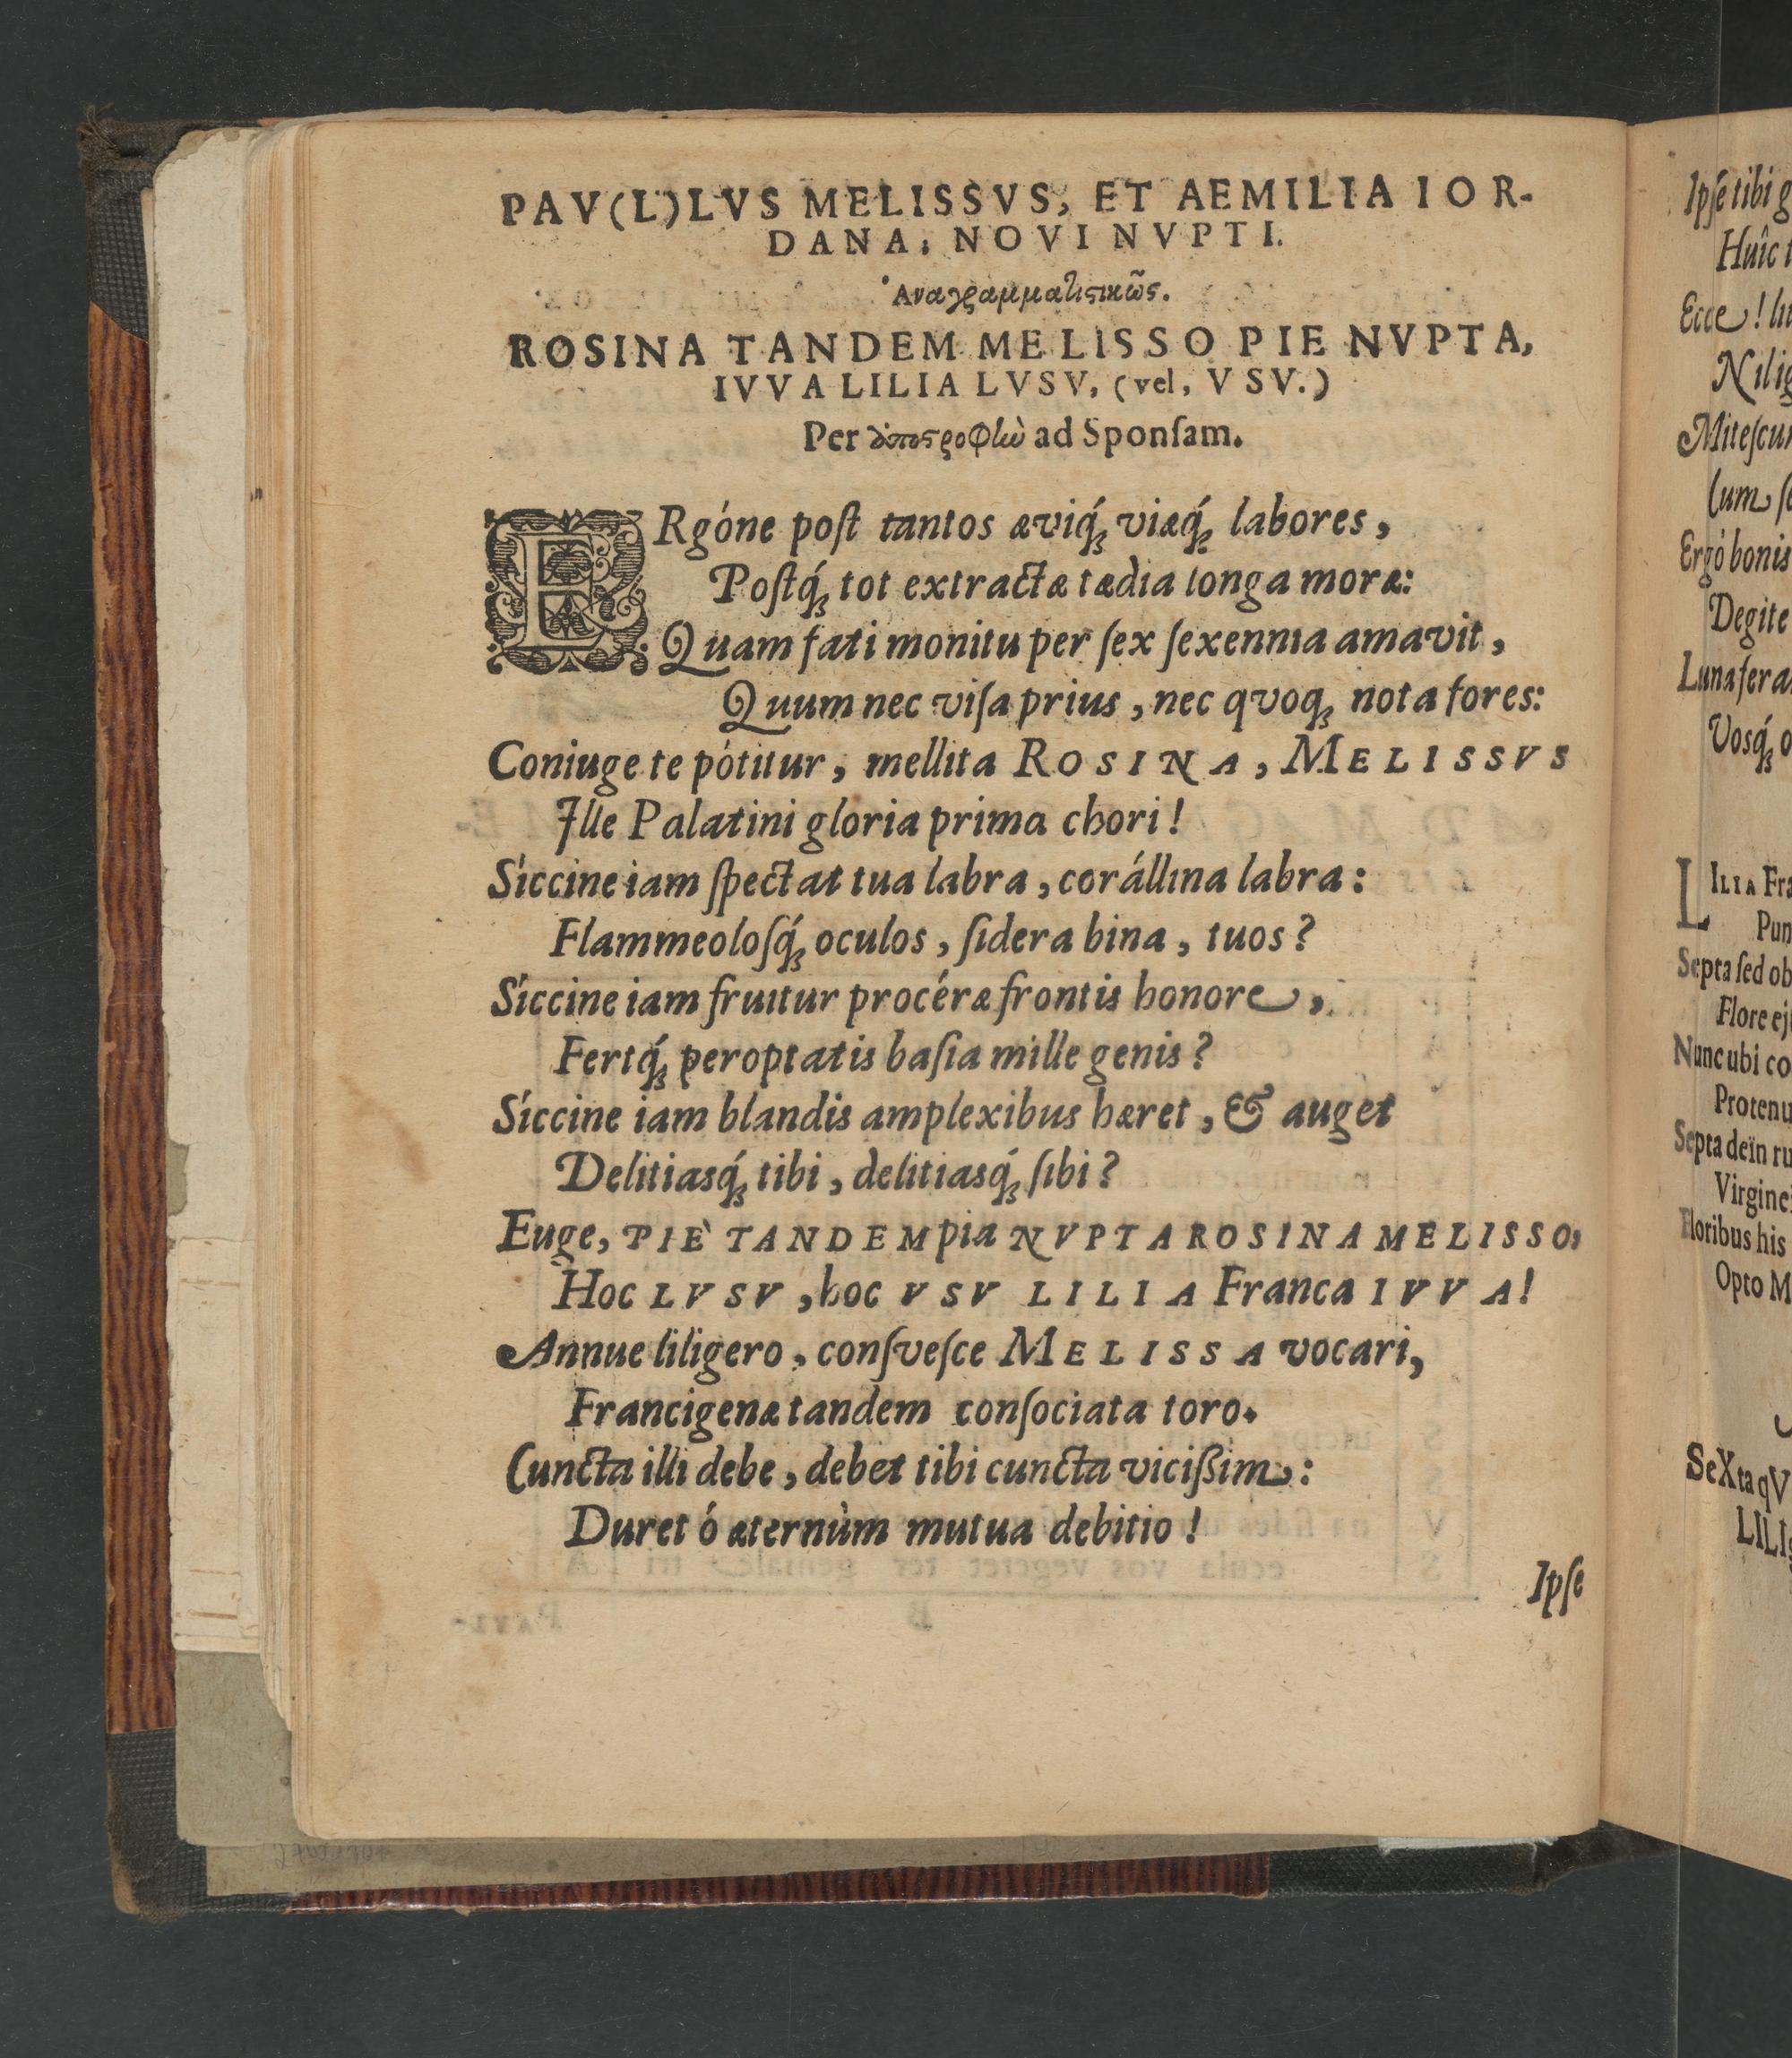 PAV(L)LVS MELISSVS, ET AEMILIA IOR-
DANA, NOVI NVPTI.
Ἀναγραμματιστικῶς.
ROSINA TANDEM MELISSO PIE NVPTA,
IVVA LILIA LVSV, (vel, VSV.)
Per ἀποστροφὴν ad Sponſam.
ERgóne poſt tantos æviq́ꝫ viæq́ꝫ labores,
Poſtq́ꝫ tot extractæ tædia longa moræ:
Quam fati monitu per ſex ſexennia amavit,
Quum nec viſa prius, nec qvoqꝫ nota fores:
Coniuge te pótitur, mellita ROSINA, MELISSVS
Ille Palatini gloria prima chori!
Síccine iam ſpectat tua labra, corállina labra:
Flammeoloſq́ꝫ oculos, ſidera bina, tuos?
Síccine iam fruitur procéræ frontis honore,
Fertq́ꝫ peroptatis baſia mille genis?
Síccine iam blandis amplexibus hæret, & auget
Delitiasq́ꝫ tibi, delitiasq́ꝫ ſibi?
Euge, PIÈ TANDEM pia NVPTA ROSINA MELISSO,
Hoc LVSV, hoc VSV LILIA Franca IVVA!
Annue liligero, conſveſce MELISSA vocari,
Francigenæ tandem conſociata toro.
Cuncta illi debe, debet tibi cuncta viciſsim:
Duret ó æternùm mutua debitio!
Ipſe
Ipſe tibi
Huîc
Ecce!
Miteſcu
Cum
Ergó bonis
Degite
Luna fera
Vosq́ꝫ
LILIA
Septa ſed ob
Flore
Nunc ubi
Septa deïn
Floribus his
Opto
SeXta qV